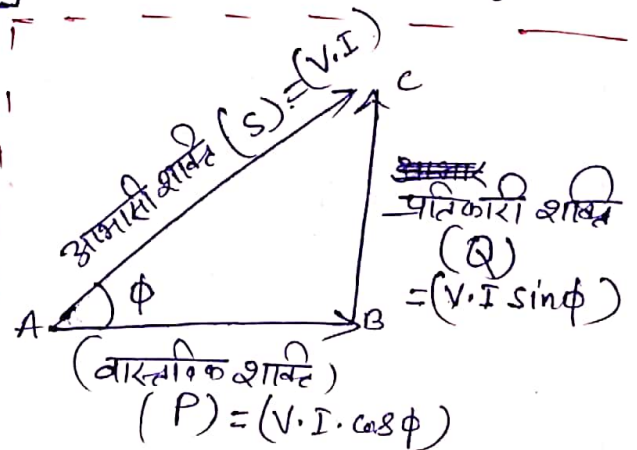 आभासी शक्ति (S) = (V.I)
C
प्रतिकारी शक्ति
(Q)
= (V.I sinφ)
φ
A
B
(वास्तविक शक्ति)
(P) = (V.I.cosφ)